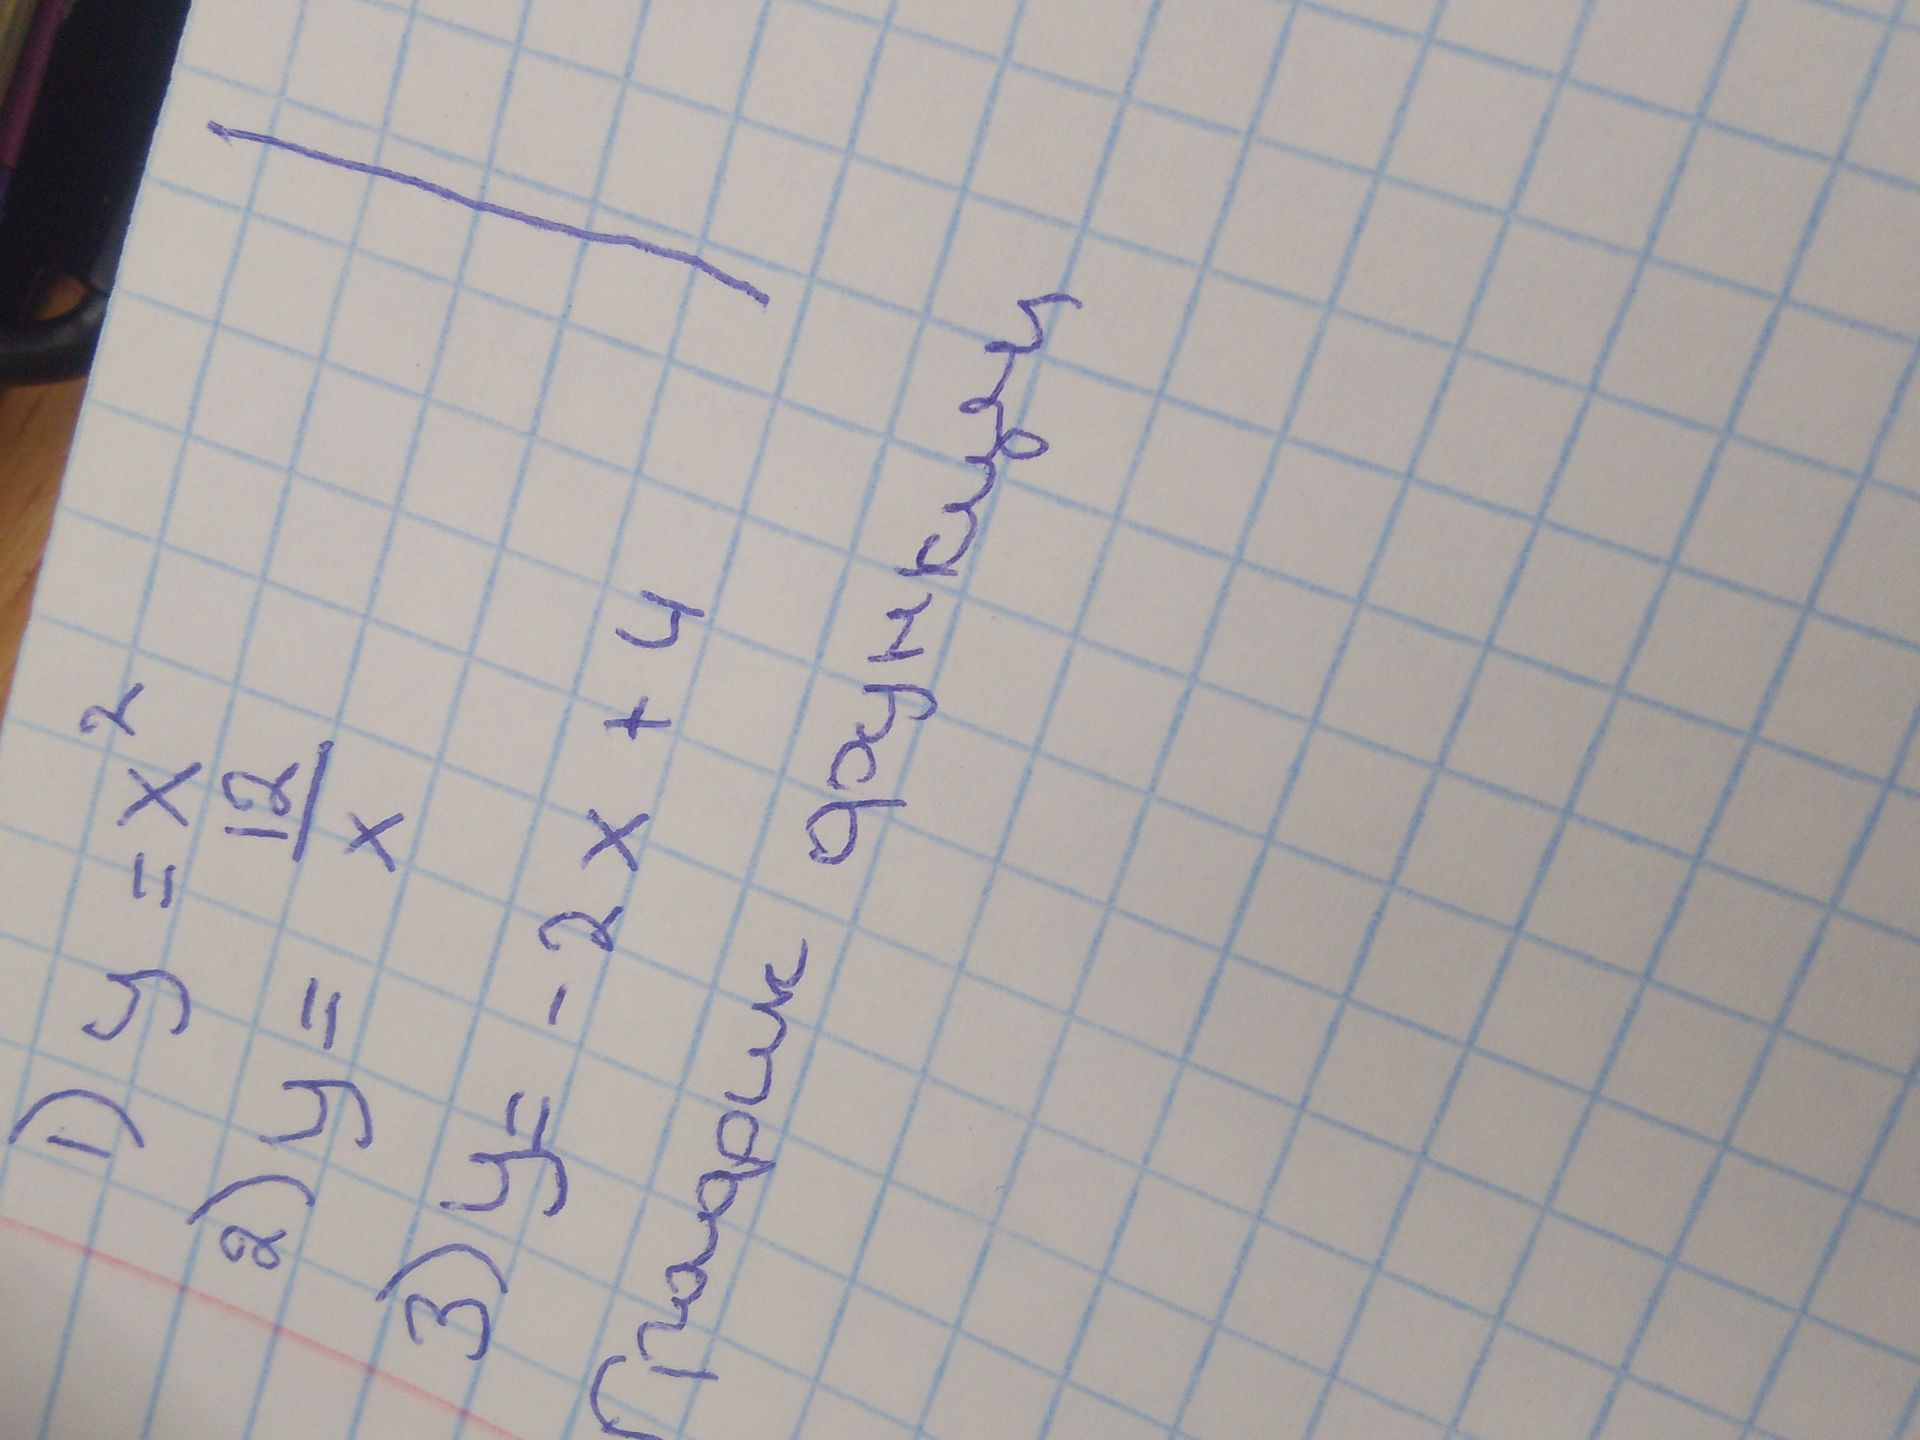 1) y = x²
2) y = 12/x
3) y = -2x + 4
График функции